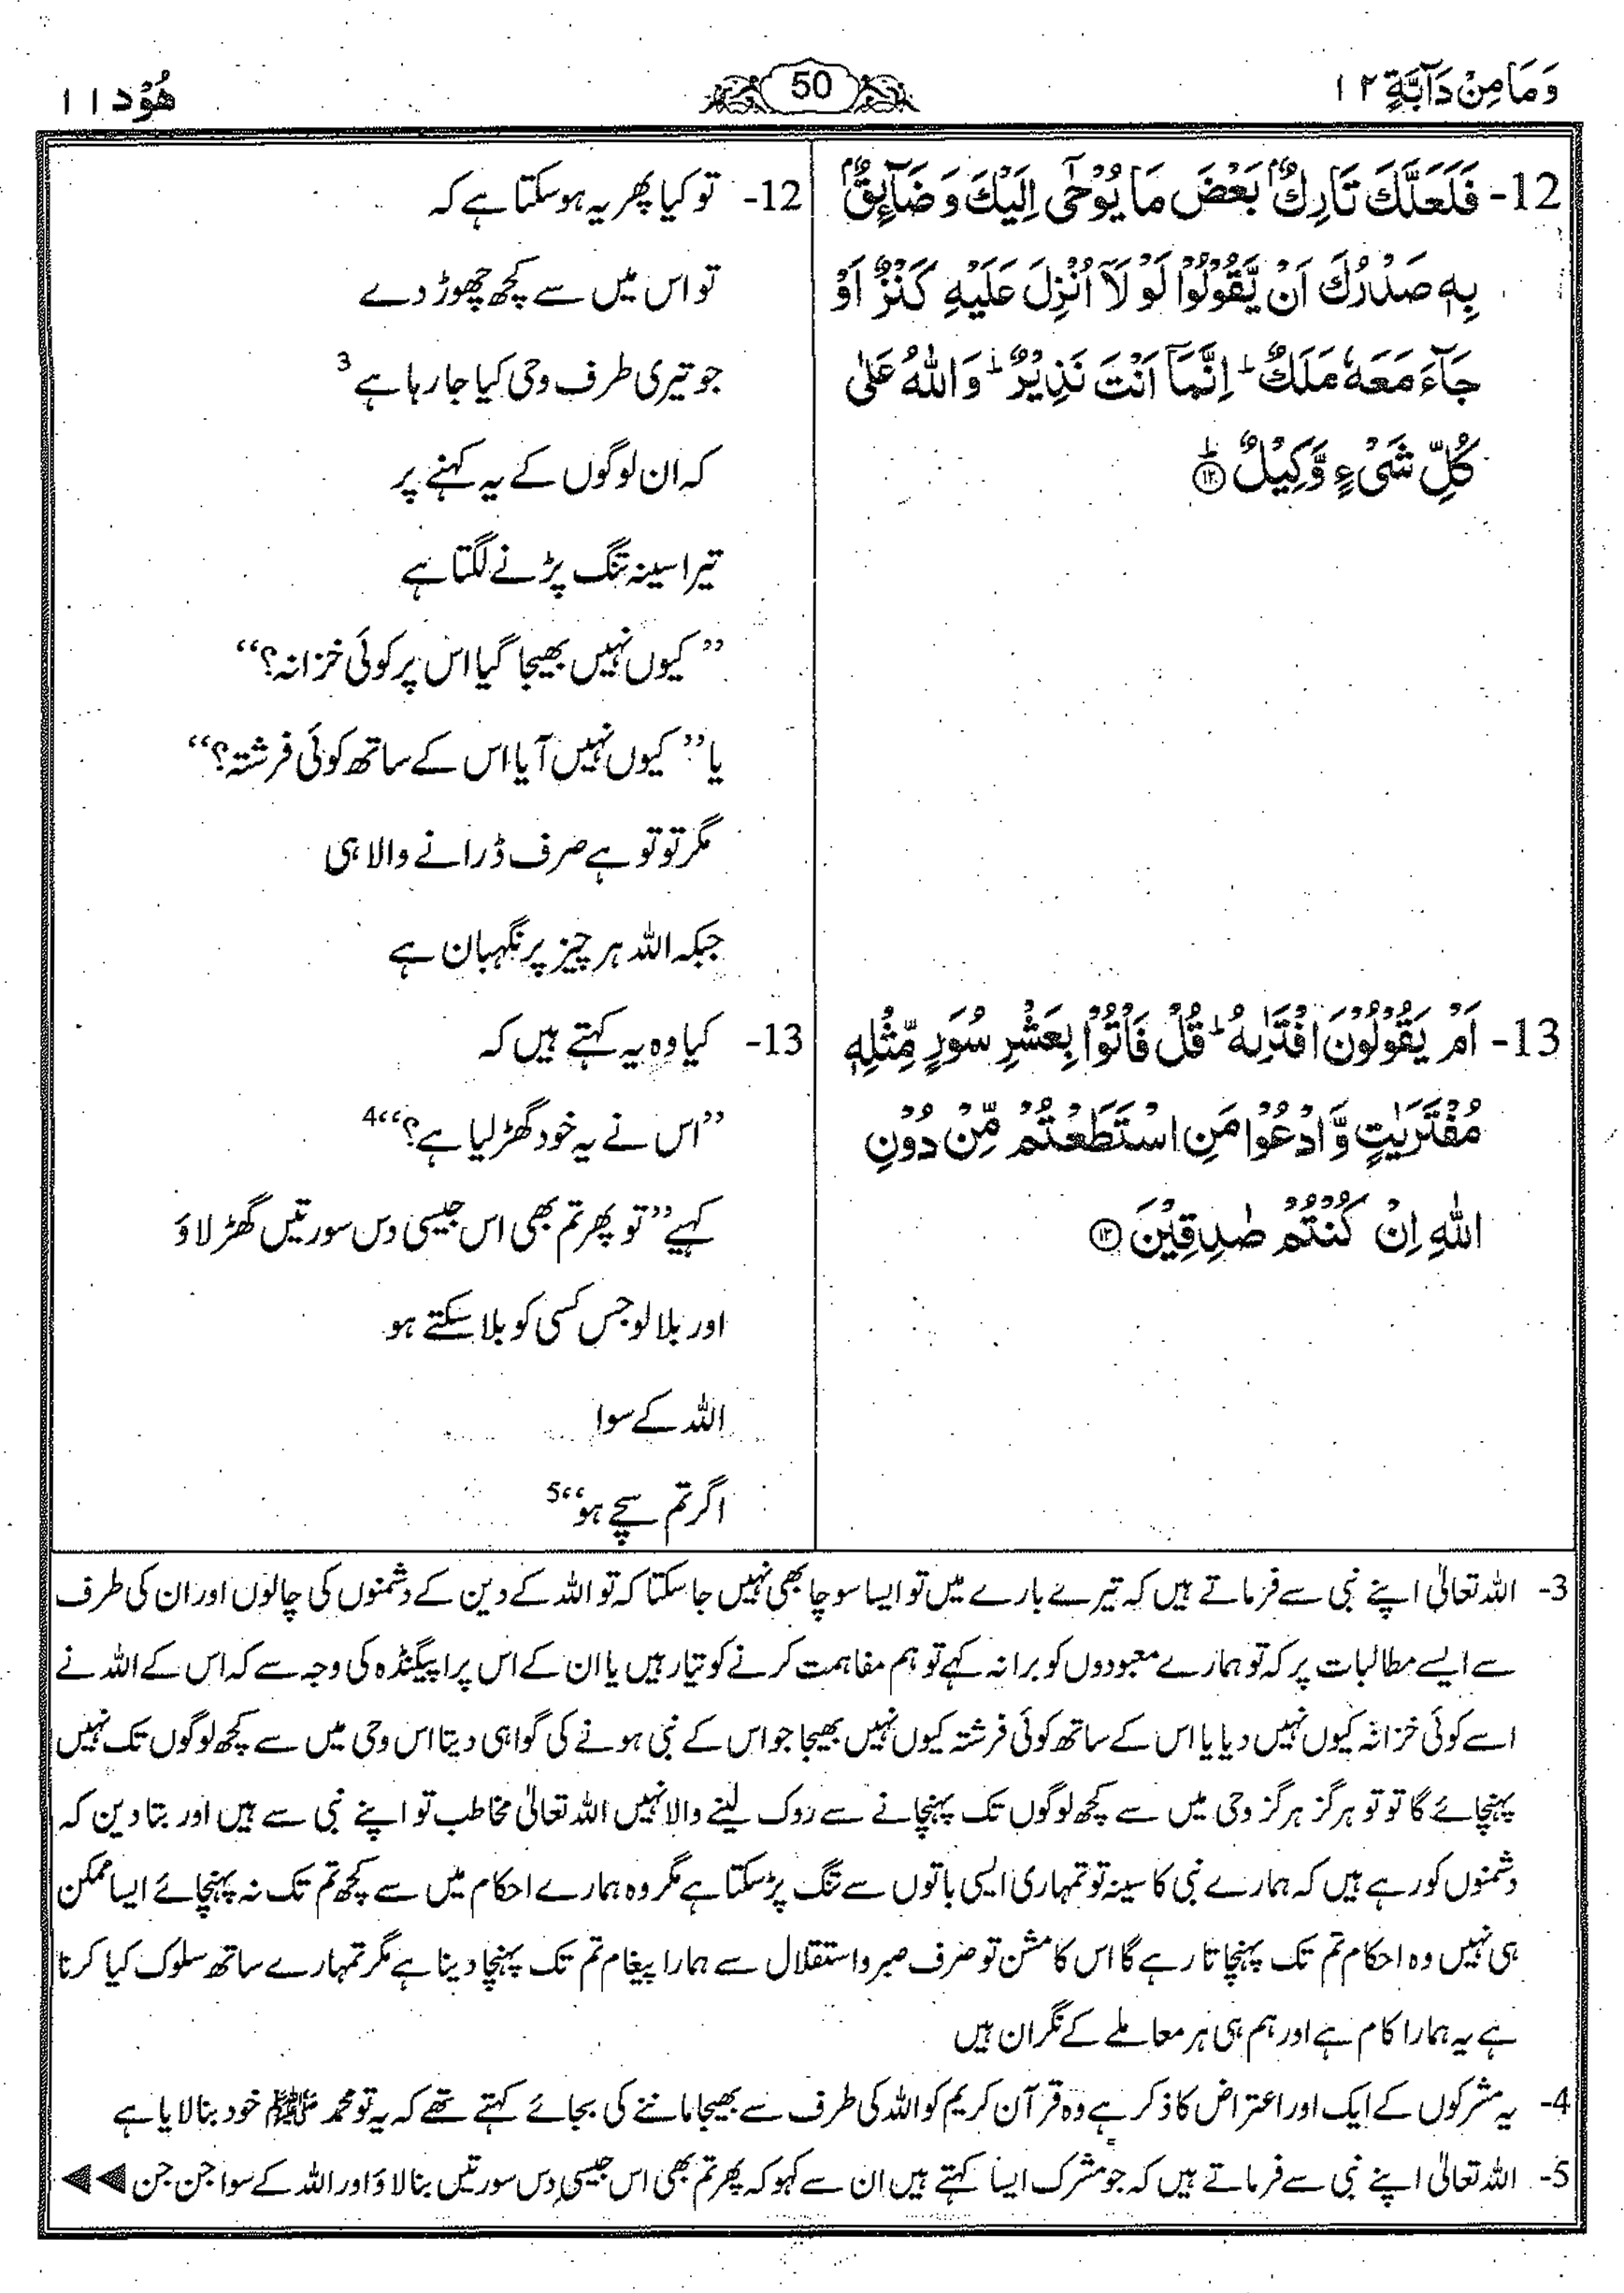 وَمَا مِنْ دَآبَّةٍ ١٢
50
هُوْد ١١
12- فَلَعَلَّكَ تَارِكٌۢ بَعْضَ مَا يُوْحٰٓى اِلَيْكَ وَ ضَآئِقٌۢ
بِهٖ صَدْرُكَ اَنْ يَّقُوْلُوْا لَوْ لَاۤ اُنْزِلَ عَلَيْهِ كَنْزٌ اَوْ
جَآءَ مَعَهٗ مَلَكٌ ؕ اِنَّمَاۤ اَنْتَ نَذِيْرٌ ؕ وَ اللّٰهُ عَلٰى
كُلِّ شَیْءٍ وَّكِيْلٌ ؕ ۝۱۲
12- تو کیا پھر یہ ہو سکتا ہے کہ
تو اس میں سے کچھ چھوڑ دے
جو تیری طرف وحی کیا جا رہا ہے 3
کہ ان لوگوں کے یہ کہنے پر
تیرا سینہ تنگ پڑنے لگتا ہے
”کیوں نہیں بھیجا گیا اس پر کوئی خزانہ؟“
یا ”کیوں نہیں آیا اس کے ساتھ کوئی فرشتہ؟“
مگر تو تو ہے صرف ڈرانے والا ہی
جبکہ اللہ ہر چیز پر نگہبان ہے
13- اَمْ يَقُوْلُوْنَ افْتَرٰىهُ ؕ قُلْ فَاْتُوْا بِعَشْرِ سُوَرٍ مِّثْلِهٖ
مُفْتَرَيٰتٍ وَّ ادْعُوْا مَنِ اسْتَطَعْتُمْ مِّنْ دُوْنِ
اللّٰهِ اِنْ كُنْتُمْ صٰدِقِيْنَ ۝۱۳
13- کیا وہ یہ کہتے ہیں کہ
”اس نے یہ خود گھڑ لیا ہے؟“ 4
کہیے ”تو پھر تم بھی اس جیسی دس سورتیں گھڑ لاؤ
اور بلا لو جس کسی کو بلا سکتے ہو
اللہ کے سوا
اگر تم سچے ہو“ 5
3- اللہ تعالیٰ اپنے نبی سے فرماتے ہیں کہ تیرے بارے میں تو ایسا سوچا بھی نہیں جا سکتا کہ تو اللہ کے دین کے دشمنوں کی چالوں اور ان کی طرف
سے ایسے مطالبات پر کہ تو ہمارے معبودوں کو برا نہ کہے تو ہم مفاہمت کرنے کو تیار ہیں یا ان کے اس پراپیگنڈہ کی وجہ سے کہ اس کے اللہ نے
اسے کوئی خزانہ کیوں نہیں دیا یا اس کے ساتھ کوئی فرشتہ کیوں نہیں بھیجا جو اس کے نبی ہونے کی گواہی دیتا اس وحی میں سے کچھ لوگوں تک نہیں
پہنچائے گا تو تو ہرگز ہرگز وحی میں سے کچھ لوگوں تک پہنچانے سے روک لینے والا نہیں اللہ تعالیٰ مخاطب تو اپنے نبی سے ہیں اور بتا دین کہ
دشمنوں کو رہے ہیں کہ ہمارے نبی کا سینہ تو تمہاری ایسی باتوں سے تنگ پڑ سکتا ہے مگر وہ ہمارے احکام میں سے کچھ تم تک نہ پہنچائے ایسا ممکن
ہی نہیں وہ احکام تم تک پہنچاتا رہے گا اس کا مشن تو صرف صبر و استقلال سے ہمارا پیغام تم تک پہنچا دینا ہے مگر تمہارے ساتھ سلوک کیا کرنا
ہے یہ ہمارا کام ہے اور ہم ہی ہر معاملے کے نگران ہیں
4- یہ مشرکوں کے ایک اور اعتراض کا ذکر ہے وہ قرآن کریم کو اللہ کی طرف سے بھیجا ماننے کی بجائے کہتے تھے کہ یہ تو محمد ﷺ خود بنا لایا ہے
5- اللہ تعالیٰ اپنے نبی سے فرماتے ہیں کہ جو مشرک ایسا کہتے ہیں ان سے کہو کہ پھر تم بھی اس جیسی دس سورتیں بنا لاؤ اور اللہ کے سوا جن جن ◀◀